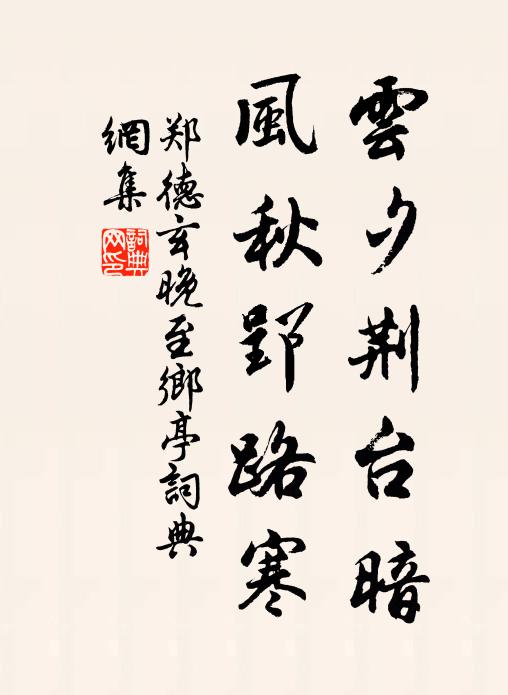 雲夕荆台暗
風秋郢路寒
郑德玄晚至鄉亭詞典
網集
詞典
网印